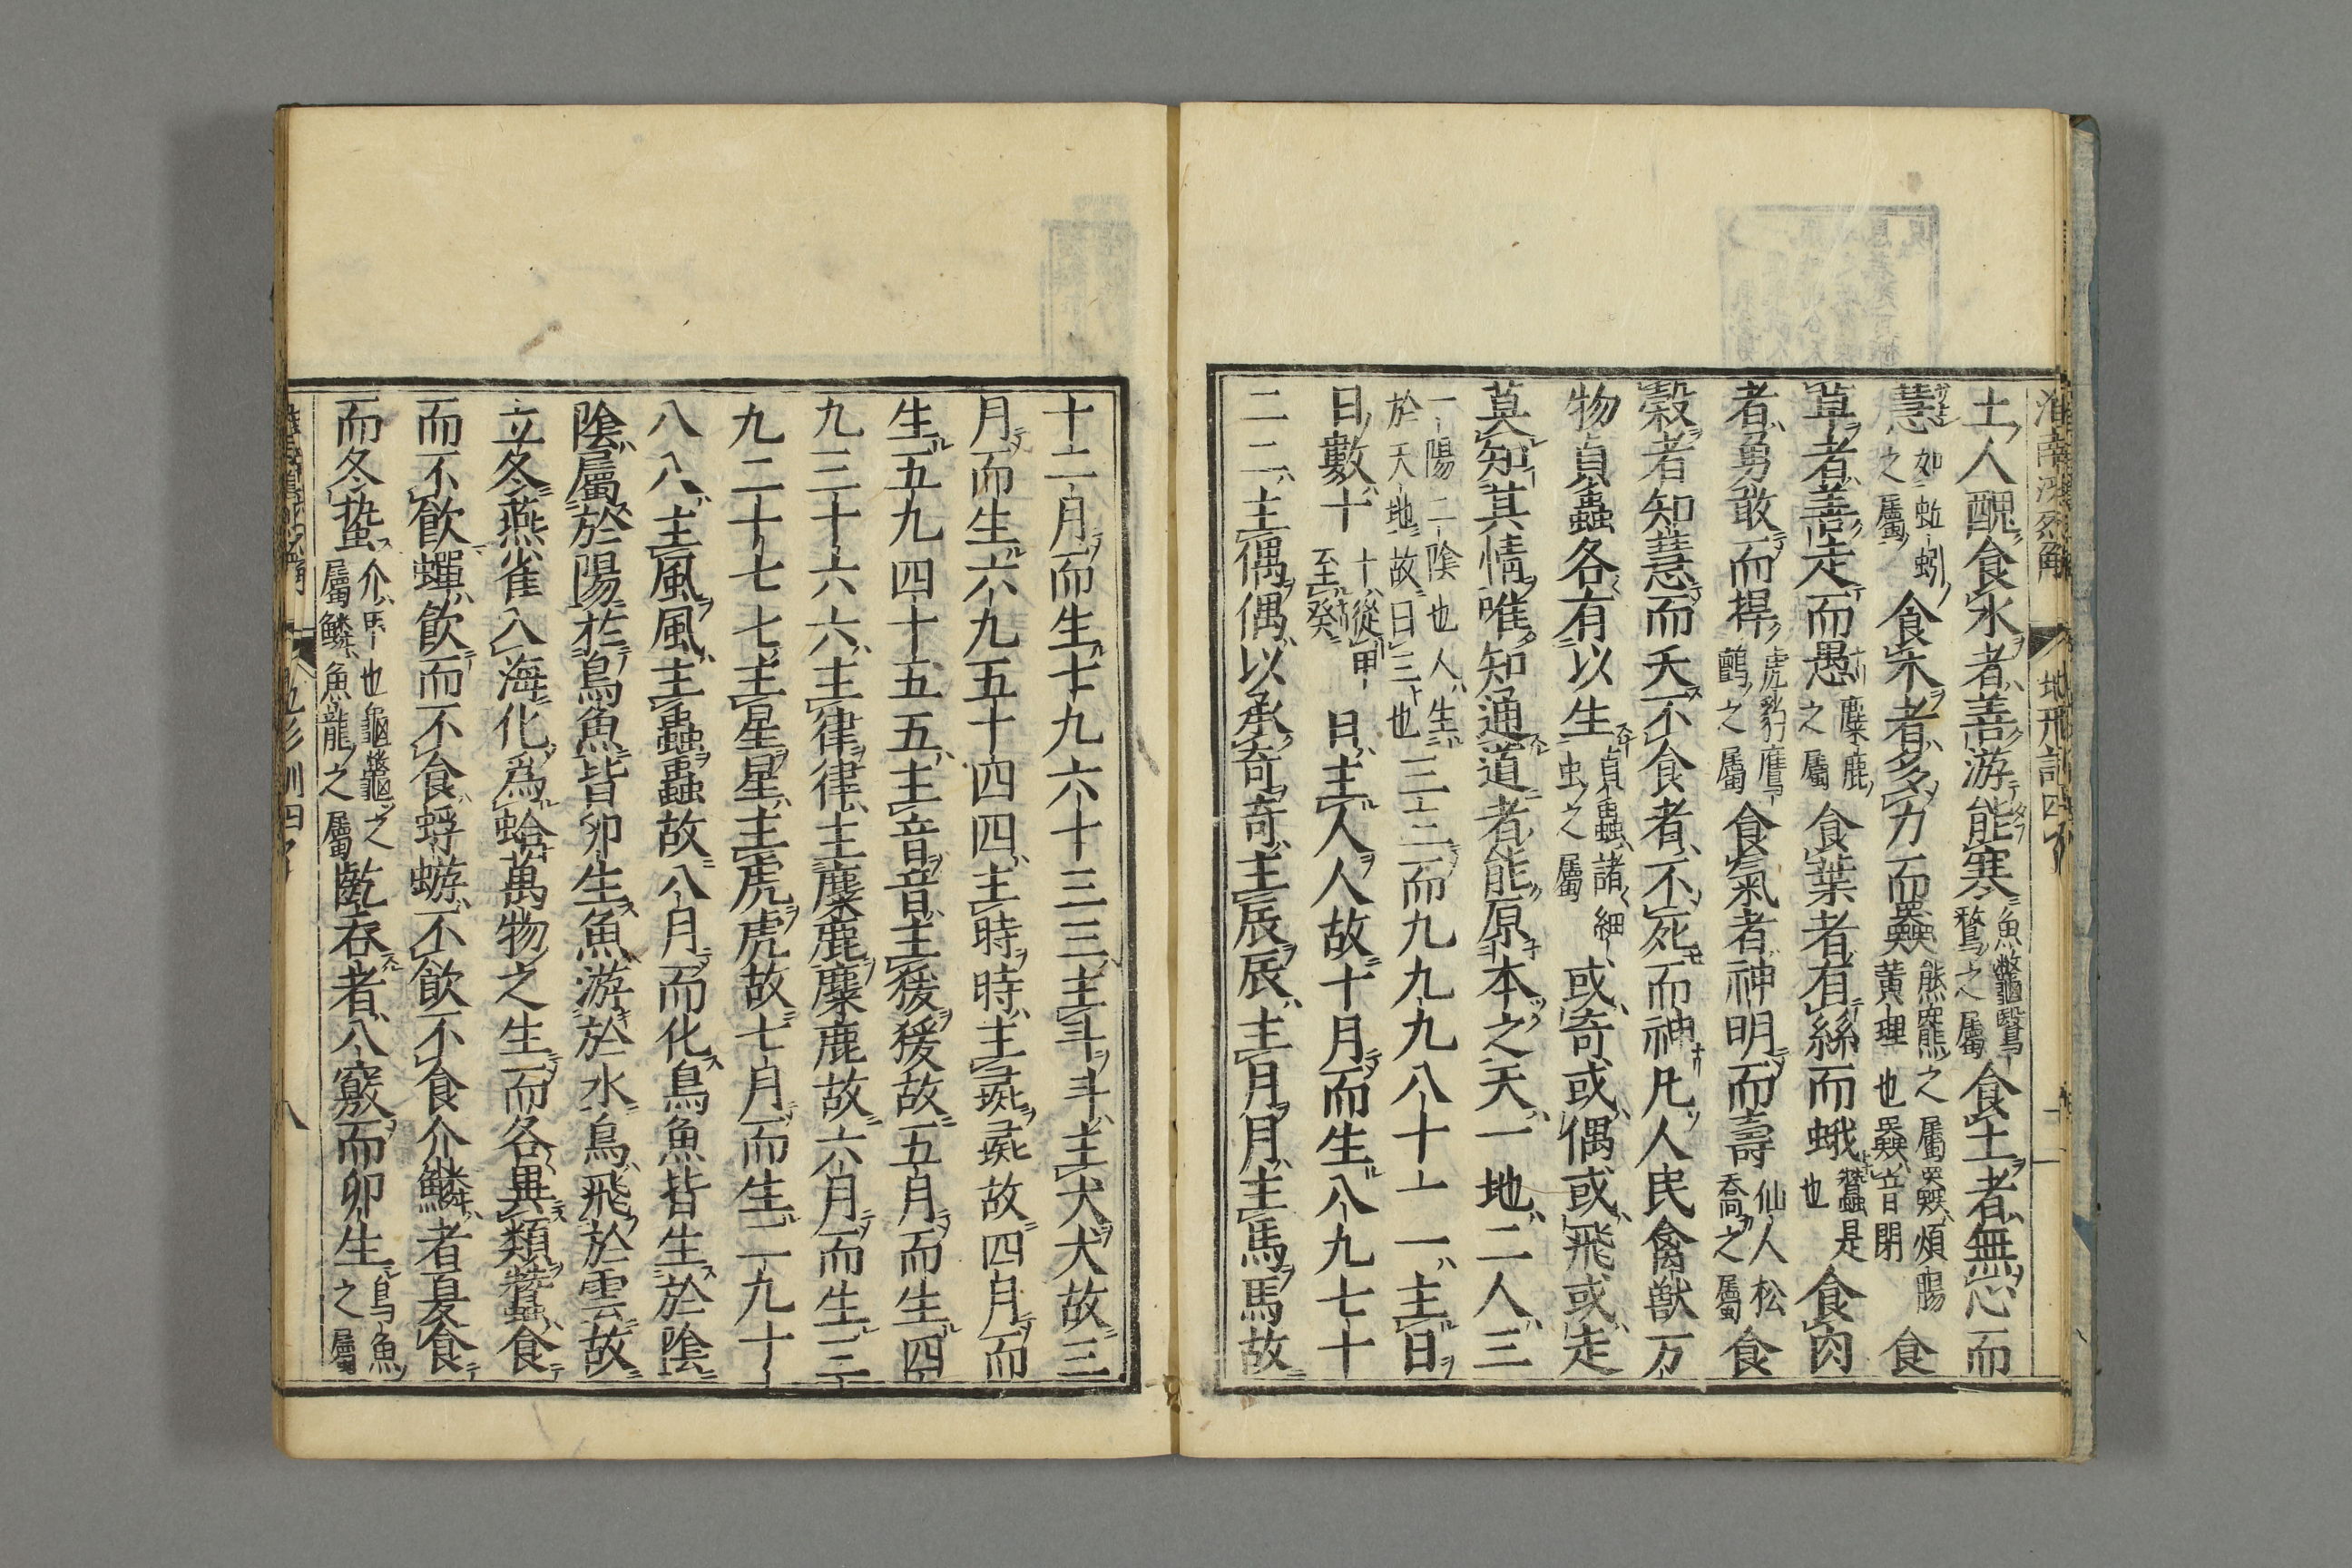 土人醜食水者善游能寒魚鼈龜鷖鶩之屬食土者無心而
慧如蚯蚓之屬食木者多力而㚔熊羆之屬㚔煩腸黄理也㚔音閉食
草者善走而愚麋鹿之屬食葉者有絲而蛾蠶是也食肉
者勇敢而捍虎豹鷹鸇之屬食氣者神明而壽仙人松喬之屬食
穀者知慧而夭不食者不死而神凡人民禽獸万
物貞蟲各有以生貞蟲諸細虫之屬或奇或偶或飛或走
莫知其情唯知通道者能原本之天一地二人三
一陽二陰也人生於天地故曰三也三三而九九九八十一一主日
日數十十從甲至癸日主人人故十月而生八九七十
二二主偶偶以承奇奇主辰辰主月月主馬馬故
十二月而生七九六十三三主斗斗主犬犬故三
月而生六九五十四四主時時主彘彘故四月而
生五九四十五五主音音主猨猨故五月而生四
九三十六六主律律主麋鹿麋鹿故六月而生三
九二十七七主星星主虎虎故七月而生二九十
八八主風風主蟲蟲故八月而化鳥魚皆生於陰
陰屬於陽故鳥魚皆卵生魚游於水鳥飛於雲故
立冬燕雀入海化爲蛤萬物之生而各異類蠶食
而不飲蟬飲而不食蜉蝣不飲不食介鱗者夏食
而冬蟄介馬也龜鼈之屬鱗魚龍之屬齕吞者八竅而卵生鳥魚之屬
八